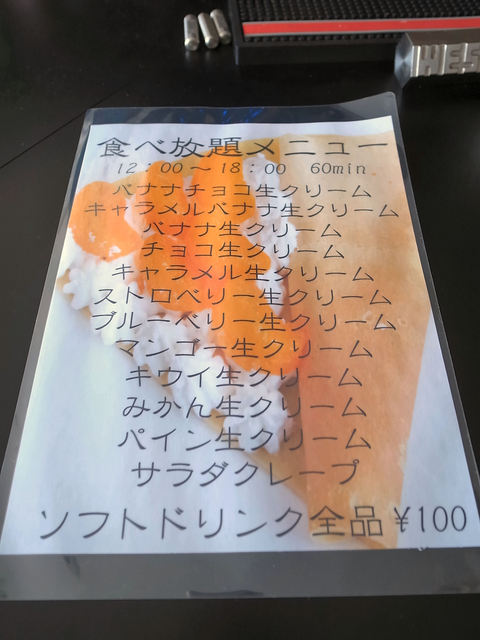 WES
食べ放題メニュー
12：00～18：00 60min
バナナチョコ生クリーム
キャラメルバナナ生クリーム
バナナ生クリーム
チョコ生クリーム
キャラメル生クリーム
ストロベリー生クリーム
ブルーベリー生クリーム
マンゴー生クリーム
キウイ生クリーム
みかん生クリーム
パイン生クリーム
サラダクレープ
ソフトドリンク全品￥100